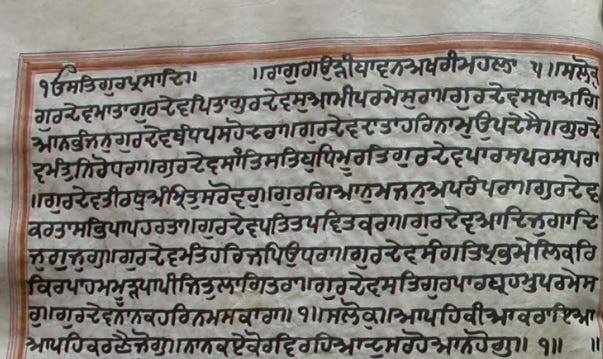 ੴਸਤਿਗੁਰਪ੍ਰਸਾਦਿ॥ ॥ਰਾਗੁਗਉੜੀਬਾਵਨਅਖਰੀਮਹਲਾ ੫॥ਸਲੋਕੁ
ਗੁਰਦੇਵਮਾਤਾਗੁਰਦੇਵਪਿਤਾਗੁਰਦੇਵਸੁਆਮੀਪਰਮੇਸੁਰਾ॥ਗੁਰਦੇਵਸਖਾਅਗਿ
ਆਨਭੰਜਨੁਗੁਰਦੇਵਬੰਧਪਸਹੋਦਰਾ॥ਗੁਰਦੇਵਦਾਤਾਹਰਿਨਾਮੁਉਪਦੇਸੈ॥ਗੁਰਦੇ
ਵਮੰਤੁਨਿਰੋਧਰਾ॥ਗੁਰਦੇਵਸਾਂਤਿਸਤਿਬੁਧਿਮੂਰਤਿਗੁਰਦੇਵਪਾਰਸਪਰਸਪਰਾ
॥ਗੁਰਦੇਵਤੀਰਥੁਅੰਮ੍ਰਿਤਸਰੋਵਰੁ॥ਗੁਰਗਿਆਨਮਜਨੁਅਪਰੰਪਰਾ॥ਗੁਰਦੇਵ
ਕਰਤਾਸਭਿਪਾਪਹਰਤਾ॥ਗੁਰਦੇਵਪਤਿਤਪਵਿਤਕਰਾ॥ਗੁਰਦੇਵਆਦਿਜੁਗਾਦਿ
ਜੁਗੁਜੁਗੁ॥ਗੁਰਦੇਵਮੰਤਹਰਿਜਪਿਉਧਰਾ॥ਗੁਰਦੇਵਸੰਗਤਿਪ੍ਰਭਮੇਲਿਕਰਿ
ਕਿਰਪਾਹਮਮੂੜਪਾਪੀਜਿਤੁਲਗਿਤਰਾ॥ਗੁਰਦੇਵਸਤਿਗੁਰਪਾਰਬ੍ਰਹਮੁਪਰਮੇਸ
ਰੁ॥ਗੁਰਦੇਵਨਾਨਕਹਰਿਨਮਸਕਾਰਾ॥ ੧॥ਸਲੋਕੁ॥ਆਪਹਿਕੀਆਕਰਾਇਆ
ਆਪਹਿਕਰਣੈਜੋਗੁ॥ਨਾਨਕਏਕੋਰਵਿਰਹਿਆਦੂਸਰਹੋਆਨਹੋਗੁ॥ ੧॥ ॥